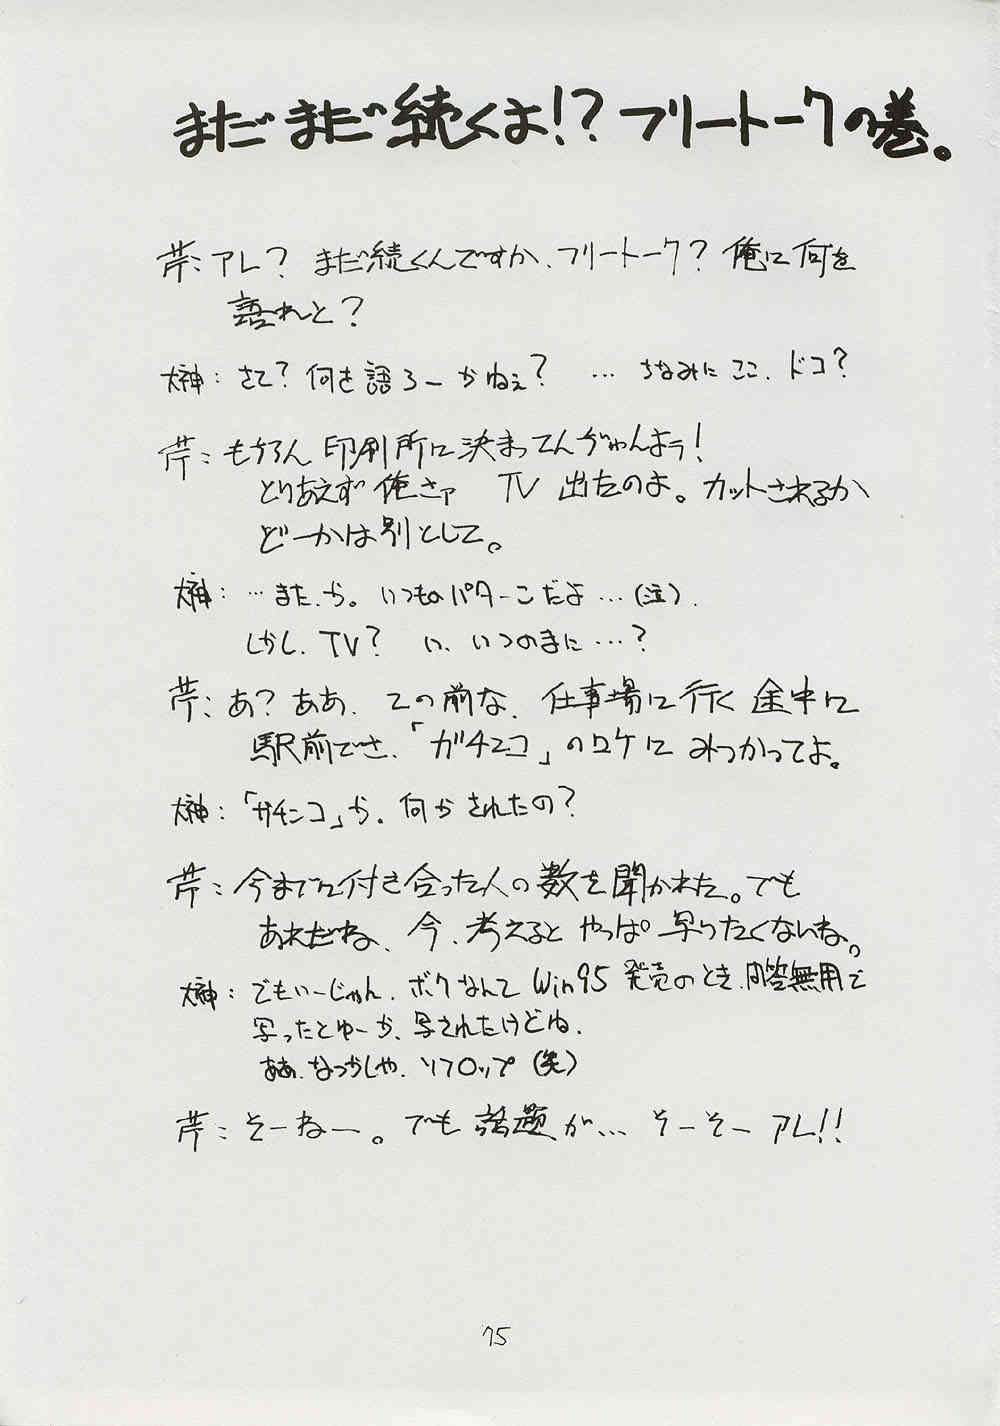 まだまだ続くよ!? フリートークの巻。
芹: アレ? まだ続くんですか、フリートーク? 俺に何を
語れと?
大神: さて? 何を語ろーかねぇ? … ちなみにここ、ドコ?
芹: もちろん印刷所に決まってんぢゃんよぅ!
とりあえず俺さァ TV 出たのよ。カットされるか
どーかは別として。
大神: …また、か。いつものパターンだよ…(泣)。
しかし、TV? い、いつのまに…?
芹: あ? ああ、この前な、仕事場に行く途中に
駅前でさ、「ガチンコ」のロケに みつかってよ。
大神: 「ガチンコ」か。何かされたの?
芹: 今までに付き合った人の数を聞かれた。でも
あれだね、今、考えると やっぱ写りたくないね。
大神: でもいーじゃん、ボクなんて Win95 発売のとき、問答無用で
写ったとゆーか、写されたけどね。
ああ、なつかしや、ソフロップ (笑)
芹: そーねー。でも話題が… そーそーアレ!!
75